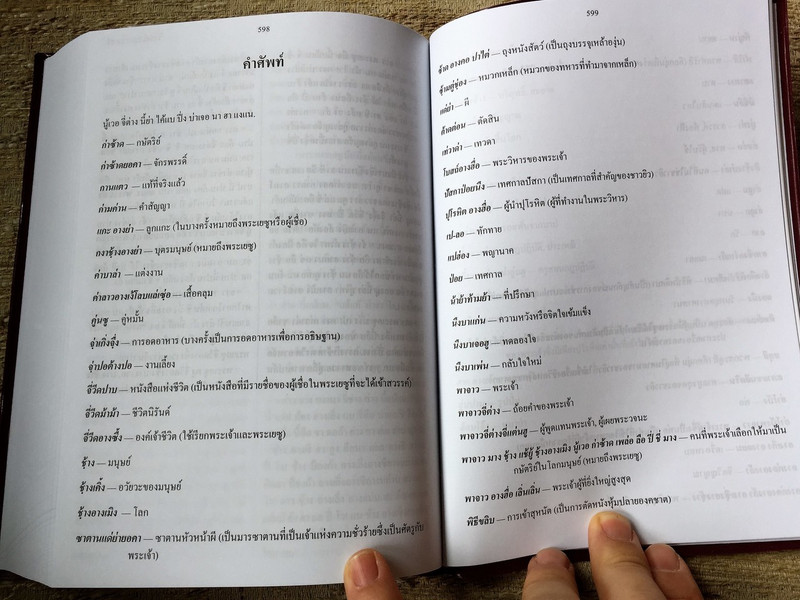 598
คำศัพท์
นู้เวอ จี่ต่าง นี้ย่า ไค้แบ ปิ่ง บ่าเจอ นา ฮา แงแน.
ก่าซ้าด — กษัตริย์
ก่าซ้าดยอคา — จักรพรรดิ์
กานแคว — แท้ที่จริงแล้ว
ก่ามค่าน — คำสัญญา
แกะ อางย่า — ลูกแกะ (ในบางครั้งหมายถึงพระเยซูหรือผู้เชื่อ)
กงาช้างอางย่า — บุตรมนุษย์ (หมายถึงพระเยซู)
ค่าบาล่า — แต่งงาน
ค่าลาวอางเง้โลบแล่เซ่อ — เสื้อคลุม
คู่นซู — คู่หมั้น
จุ่เกิงจึ่ง — การอดอาหาร (บางครั้งเป็นการอดอาหารเพื่อการอธิษฐาน)
จุ่าปอต้างปอ — งานเลี้ยง
จี่วีดปาบ — หนังสือแห่งชีวิต (เป็นหนังสือที่มีรายชื่อของผู้เชื่อในพระเยซูที่จะได้เข้าสวรรค์)
จี่วีดม้าม้า — ชีวิตนิรันด์
จี่วีดอางซึ้ง — องค์เจ้าชีวิต (ใช้เรียกพระเจ้าและพระเยซู)
ช้าง — มนุษย์
ช้างเคิ้ง — อวัยวะของมนุษย์
ช้างอางเมิง — โลก
ซาตานแด่ย่ายอคา — ซาตานหัวหน้าผี (เป็นมารซาตานที่เป็นเจ้าแห่งความชั่วร้ายซึ่งเป็นศัตรูกับ
พระเจ้า)
599
ซ้าด อางคอ ปาไค่ — ถุงหนังสัตว์ (เป็นถุงบรรจุเหล้าองุ่น)
ซ้ามคู่ซู่อง — หมวกเหล็ก (หมวกของทหารที่ทำมาจากเหล็ก)
แด่ย่า — ผี
ต้าดต่อน — ตัดสิน
เท่วาด่า — เทวดา
โบสถ์อางลื่อ — พระวิหารของพระเจ้า
ปัสคาป่อยนึง — เทศกาลปัสกา (เป็นเทศกาลที่สำคัญของชาวยิว)
ปุโรหิต อางลื่อ — ผู้นำปุโรหิต (ผู้ที่ทำงานในพระวิหาร)
เป-ลอ — ทักทาย
แปล่อง — พญานาค
ป้อย — เทศกาล
น้าย้าท้ามย้า — ที่ปรึกษา
นืงบาแก่น — ความหวังหรือจิตใจเข้มแข็ง
นืงบาเจอฮู — ทดลองใจ
นืงบาเพ่น — กลับใจใหม่
พาจาว — พระเจ้า
พาจาวจี่ต่าง — ถ้อยคำของพระเจ้า
พาจาวจี่ต่างจีแต่นฮู — ผู้พูดแทนพระเจ้า, ผู้เผยพระวจนะ
พาจาว มาง ช้าง แช้ยู้ ช้างอางเมิง นู้เวอ ก่าซ้าด เพล่อ ลือ ปี้ ชี่ มาง — คนที่พระเจ้าเลือกให้มาเป็น
กษัตริย์ในโลกมนุษย์ (หมายถึงพระเยซู)
พาจาว อางลื่อ เลิ่นเลิ่น — พระเจ้าผู้ที่ยิ่งใหญ่สูงสุด
พิธีขลิบ — การเข้าสุหนัต (เป็นการตัดหนังหุ้มปลายองคชาต)